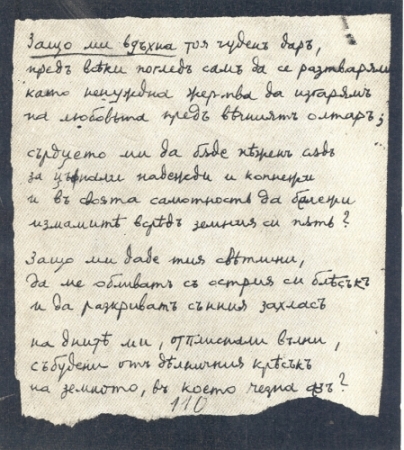 Защо ми вдъхна тоя чуденъ даръ,
предъ всѣки погледъ самъ да се разтварямъ
като ненуждна жертва да изгарямъ
на любовьта предъ вѣчниятъ олтаръ;
сърдцето ми да бѫде нѣженъ сѫдъ
за цъфнали надежди и копнежи
и въ своята самотность да бѣлежи
измамитѣ всрѣдъ земния си пѫть?
Защо ми даде тия свѣтлини,
да ме обливатъ съ острия си блѣсъкъ
и да разкриватъ сънния захласъ
на днитѣ ми, отплискали вълни,
събудени отъ дѣлничния крѣсъкъ
на земното, въ което чезна азъ?
110